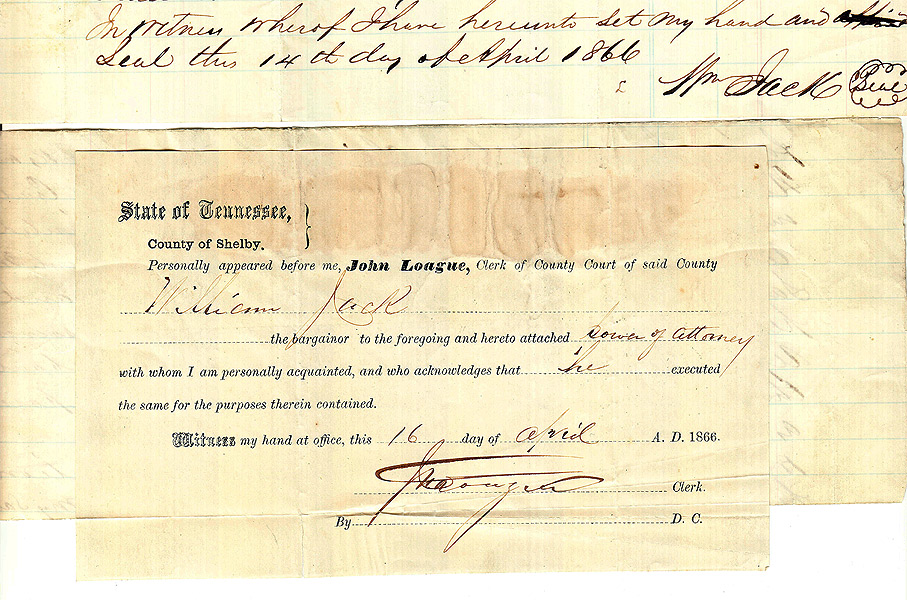 In witness wherof I have hereunto set my hand and
Seal this 14th day of April 1866
Wm Jack Seal
State of Tennessee,
County of Shelby.
Personally appeared before me, John Loague, Clerk of County Court of said County
William Jack
the bargainor to the foregoing and hereto attached Power of attorney
with whom I am personally acquainted, and who acknowledges that he executed
the same for the purposes therein contained.
Witness my hand at office, this 16 day of april A. D. 1866.
Jno Loague Clerk.
By D. C.